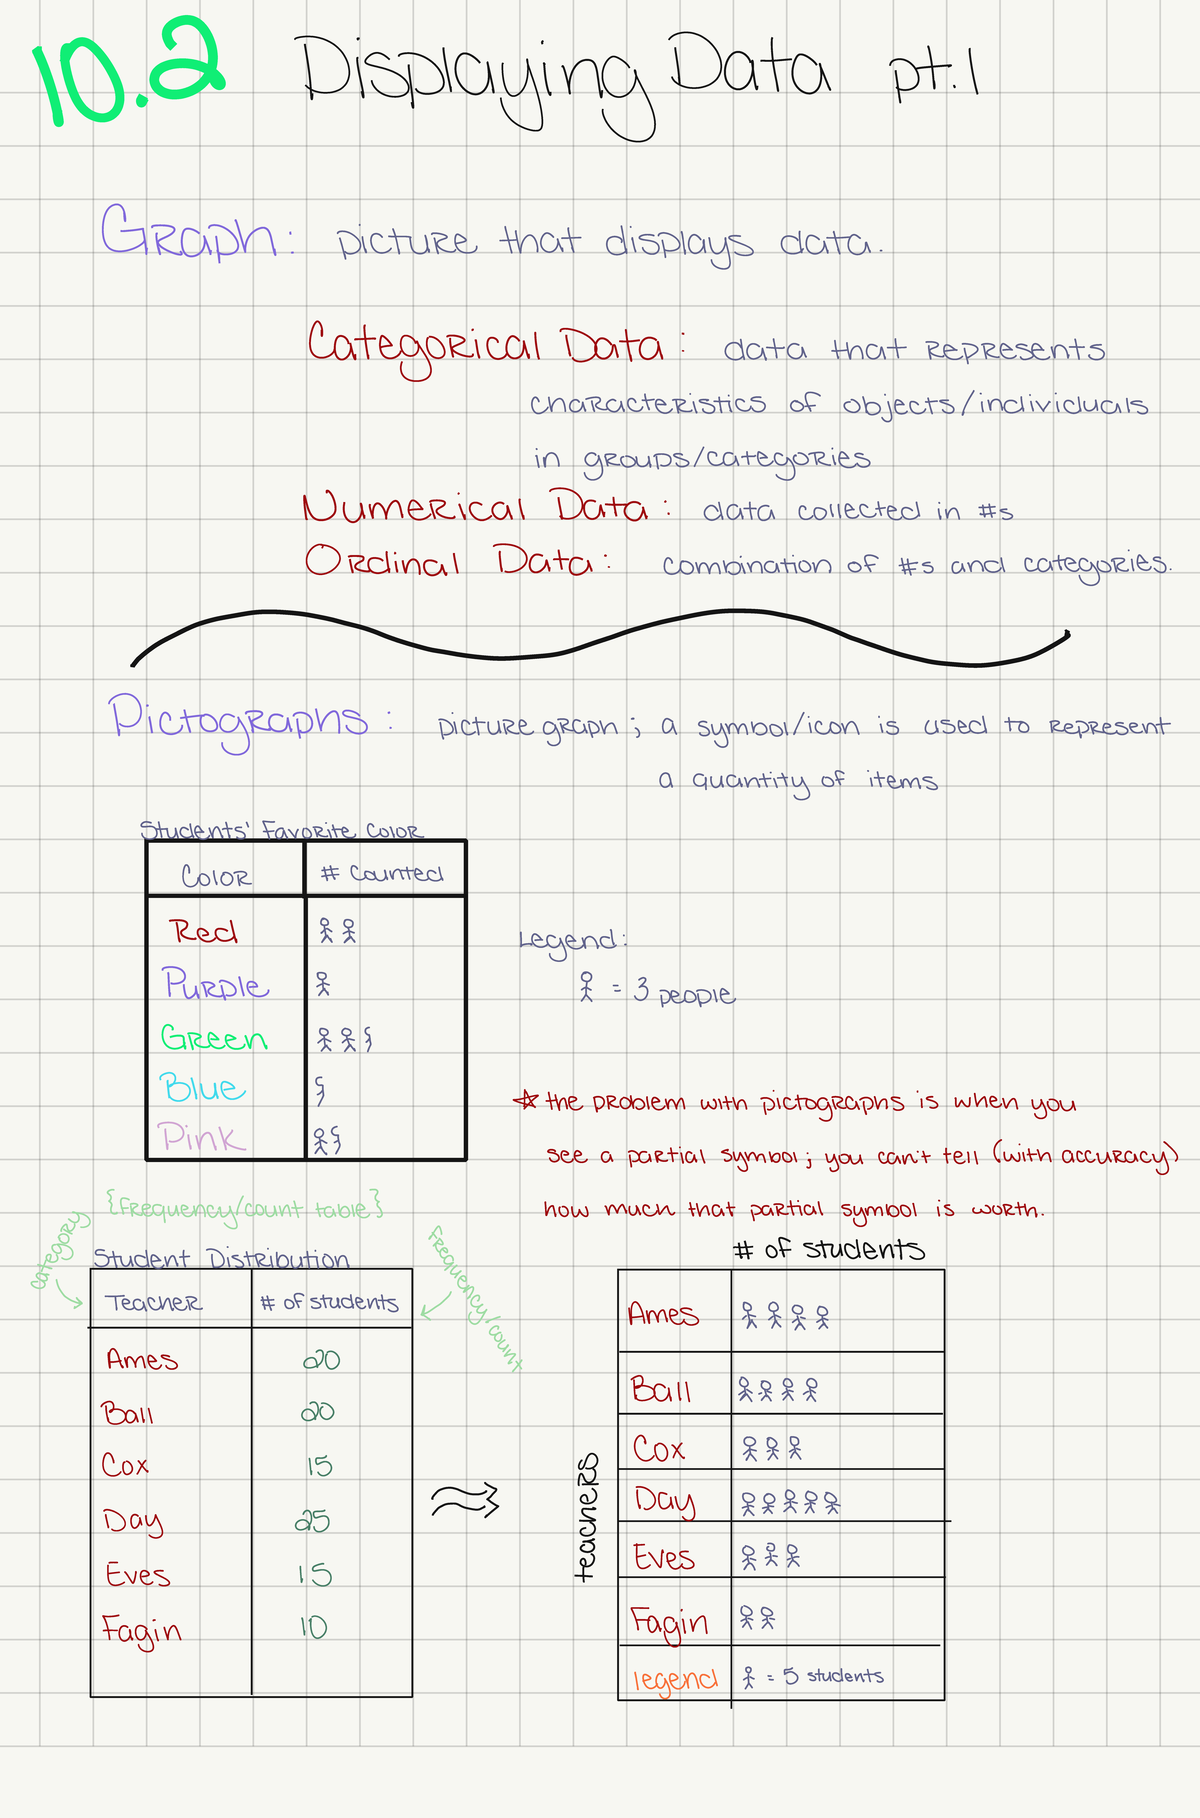 10.2 Displaying Data pt.1
Graph: picture that displays data.
Categorical Data: data that represents
characteristics of objects/individuals
in groups/categories
Numerical Data: data collected in #s
Ordinal Data: combination of #s and categories.
Pictographs: picture graph; a symbol/icon is used to represent
a quantity of items
Students' Favorite Color
Color # Counted
Red
Purple
Green
Blue
Pink
Legend:
= 3 people
☆ the problem with pictographs is when you
see a partial symbol; you can't tell (with accuracy)
how much that partial symbol is worth.
{Frequency/count table}
category
Frequency/count
Student Distribution
Teacher # of students
Ames 20
Ball 20
Cox 15
Day 25
Eves 15
Fagin 10
# of students
teachers
Ames
Ball
Cox
Day
Eves
Fagin
legend = 5 students